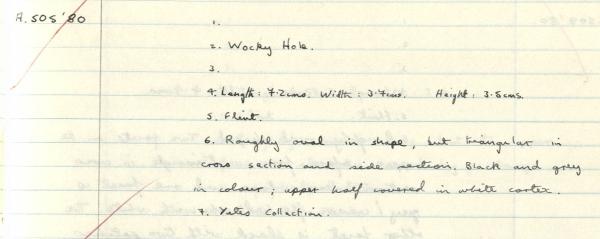 A.505'80
1.
2. Wocky Hole.
3.
4. Length: 7.2cms. Width: 3.7cms. Height: 3.5cms.
5. Flint.
6. Roughly oval in shape, but triangular in
cross section and side section. Black and grey
in colour; upper half covered in white cortex.
7. Yates Collection.